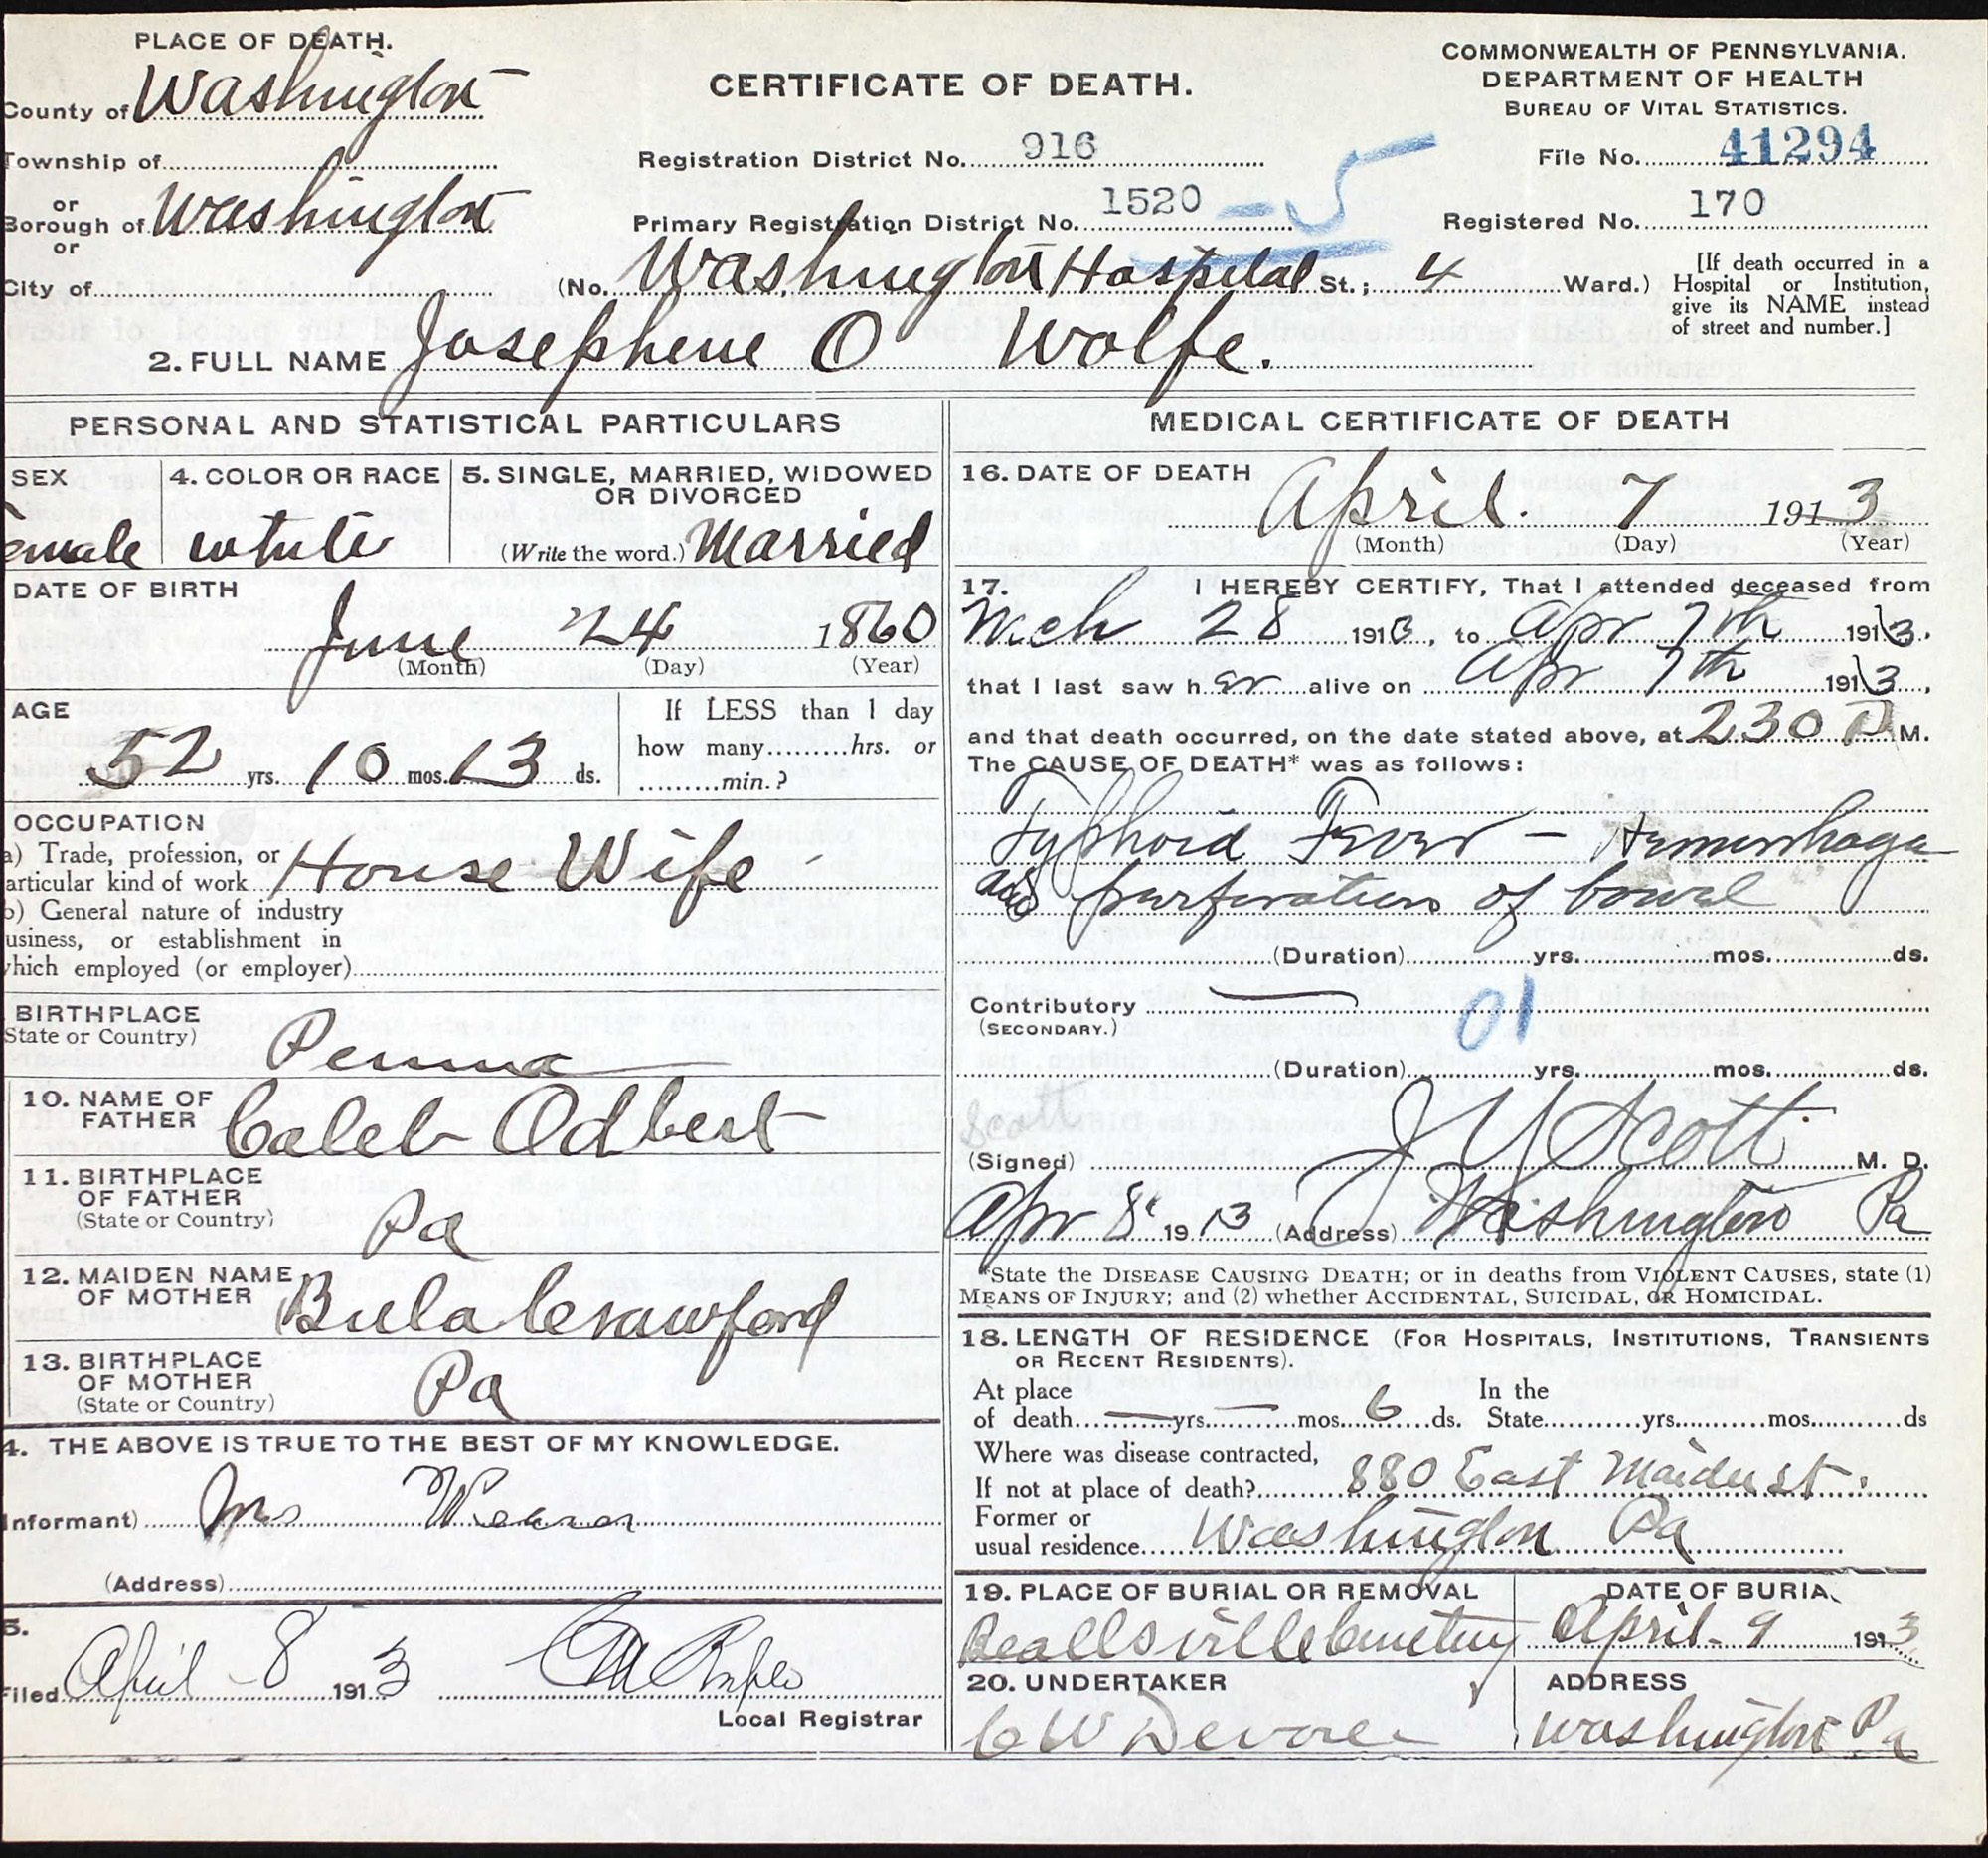 PLACE OF DEATH.
County of Washington
Township of
or
Borough of Washington
or
City of
CERTIFICATE OF DEATH.
Registration District No. 916
Primary Registration District No. 1520 -5
(No. Washington Hospital St.; 4 Ward.)
COMMONWEALTH OF PENNSYLVANIA.
DEPARTMENT OF HEALTH
BUREAU OF VITAL STATISTICS.
File No. 41294
Registered No. 170
[If death occurred in a
Hospital or Institution,
give its NAME instead
of street and number.]
2. FULL NAME Josephene O Wolfe.
PERSONAL AND STATISTICAL PARTICULARS
SEX
emale
4. COLOR OR RACE
white
5. SINGLE, MARRIED, WIDOWED
OR DIVORCED
(Write the word.) Married
DATE OF BIRTH
June 24 1860
(Month) (Day) (Year)
AGE
52 yrs. 10 mos. 13 ds.
If LESS than 1 day
how many hrs. or
min.?
OCCUPATION
a) Trade, profession, or
articular kind of work House Wife
b) General nature of industry
usiness, or establishment in
which employed (or employer)
BIRTHPLACE
State or Country)
Penna
10. NAME OF
FATHER Caleb Odbert
11. BIRTHPLACE
OF FATHER
(State or Country)
Pa
12. MAIDEN NAME
OF MOTHER Bula Crawford
13. BIRTHPLACE
OF MOTHER
(State or Country)
Pa
4. THE ABOVE IS TRUE TO THE BEST OF MY KNOWLEDGE.
Informant) Mrs
(Address)
5.
Filed April - 8 1913
Local Registrar
MEDICAL CERTIFICATE OF DEATH
16. DATE OF DEATH
April. 7 1913
(Month) (Day) (Year)
17. I HEREBY CERTIFY, That I attended deceased from
Mch 28 1913 to Apr 7th 1913.
that I last saw her alive on Apr 7th 1913,
and that death occurred, on the date stated above, at 2.30 P M.
The CAUSE OF DEATH* was as follows:
Typhoid Fever - Hemorrhage
and perforation of bowel
(Duration) yrs. mos. ds.
Contributory
(SECONDARY.)
01
(Duration) yrs. mos. ds.
Scott
(Signed) J Y Scott M. D.
Apr 8 1913 (Address) Washington Pa
*State the DISEASE CAUSING DEATH; or in deaths from VIOLENT CAUSES, state (1)
MEANS OF INJURY; and (2) whether ACCIDENTAL, SUICIDAL, OR HOMICIDAL.
18. LENGTH OF RESIDENCE (FOR HOSPITALS, INSTITUTIONS, TRANSIENTS
OR RECENT RESIDENTS).
At place
of death — yrs. — mos. 6 ds.
In the
State yrs. mos. ds
Where was disease contracted,
If not at place of death? 880 East Maiden St.
Former or
usual residence Washington Pa
19. PLACE OF BURIAL OR REMOVAL
Beallsville Cemetery
DATE OF BURIA
April - 9 1913
20. UNDERTAKER
C W Devore
ADDRESS
Washington Pa